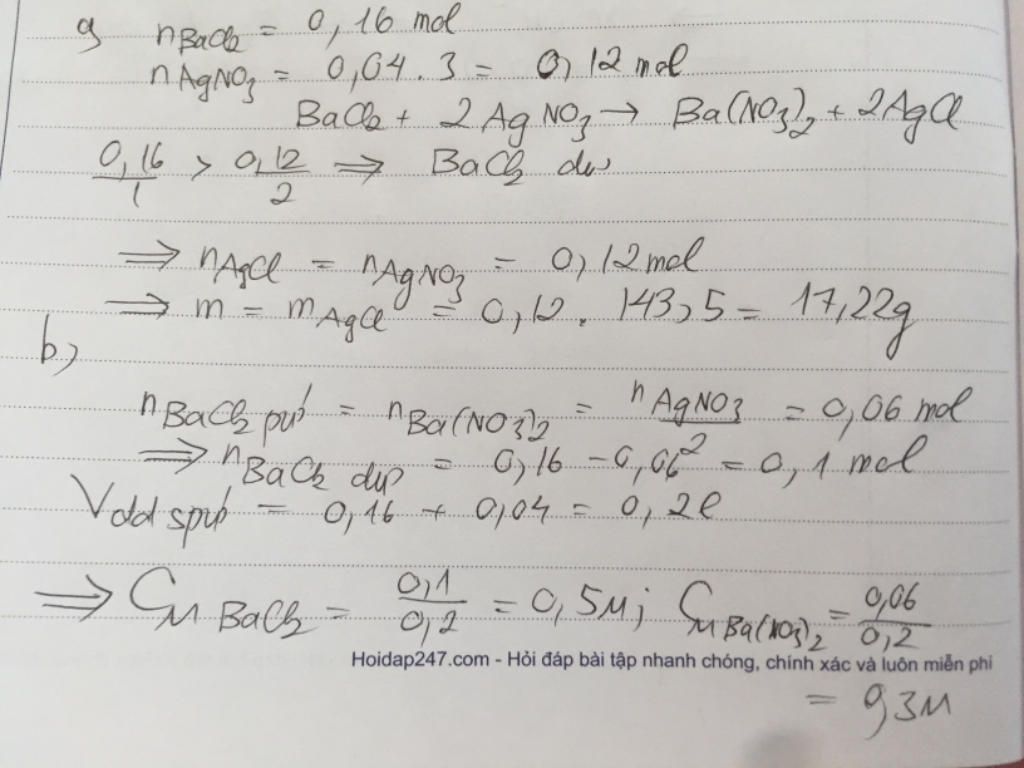 a) nBaCl2 = 0,16 mol
nAgNO3 = 0,04 . 3 = 0,12 mol
BaCl2 + 2AgNO3 → Ba(NO3)2 + 2AgCl
0,16/1 > 0,12/2 ⇒ BaCl2 dư
⇒ nAgCl = nAgNO3 = 0,12 mol
⇒ m = mAgCl = 0,12 . 143,5 = 17,22g
b)
nBaCl2 pứ = nBa(NO3)2 = nAgNO3/2 = 0,06 mol
⇒ nBaCl2 dư = 0,16 - 0,06 = 0,1 mol
Vdd spứ = 0,16 + 0,04 = 0,2l
⇒ CM BaCl2 = 0,1/0,2 = 0,5M; CM Ba(NO3)2 = 0,06/0,2
Hoidap247.com - Hỏi đáp bài tập nhanh chóng, chính xác và luôn miễn phí
= 0,3M